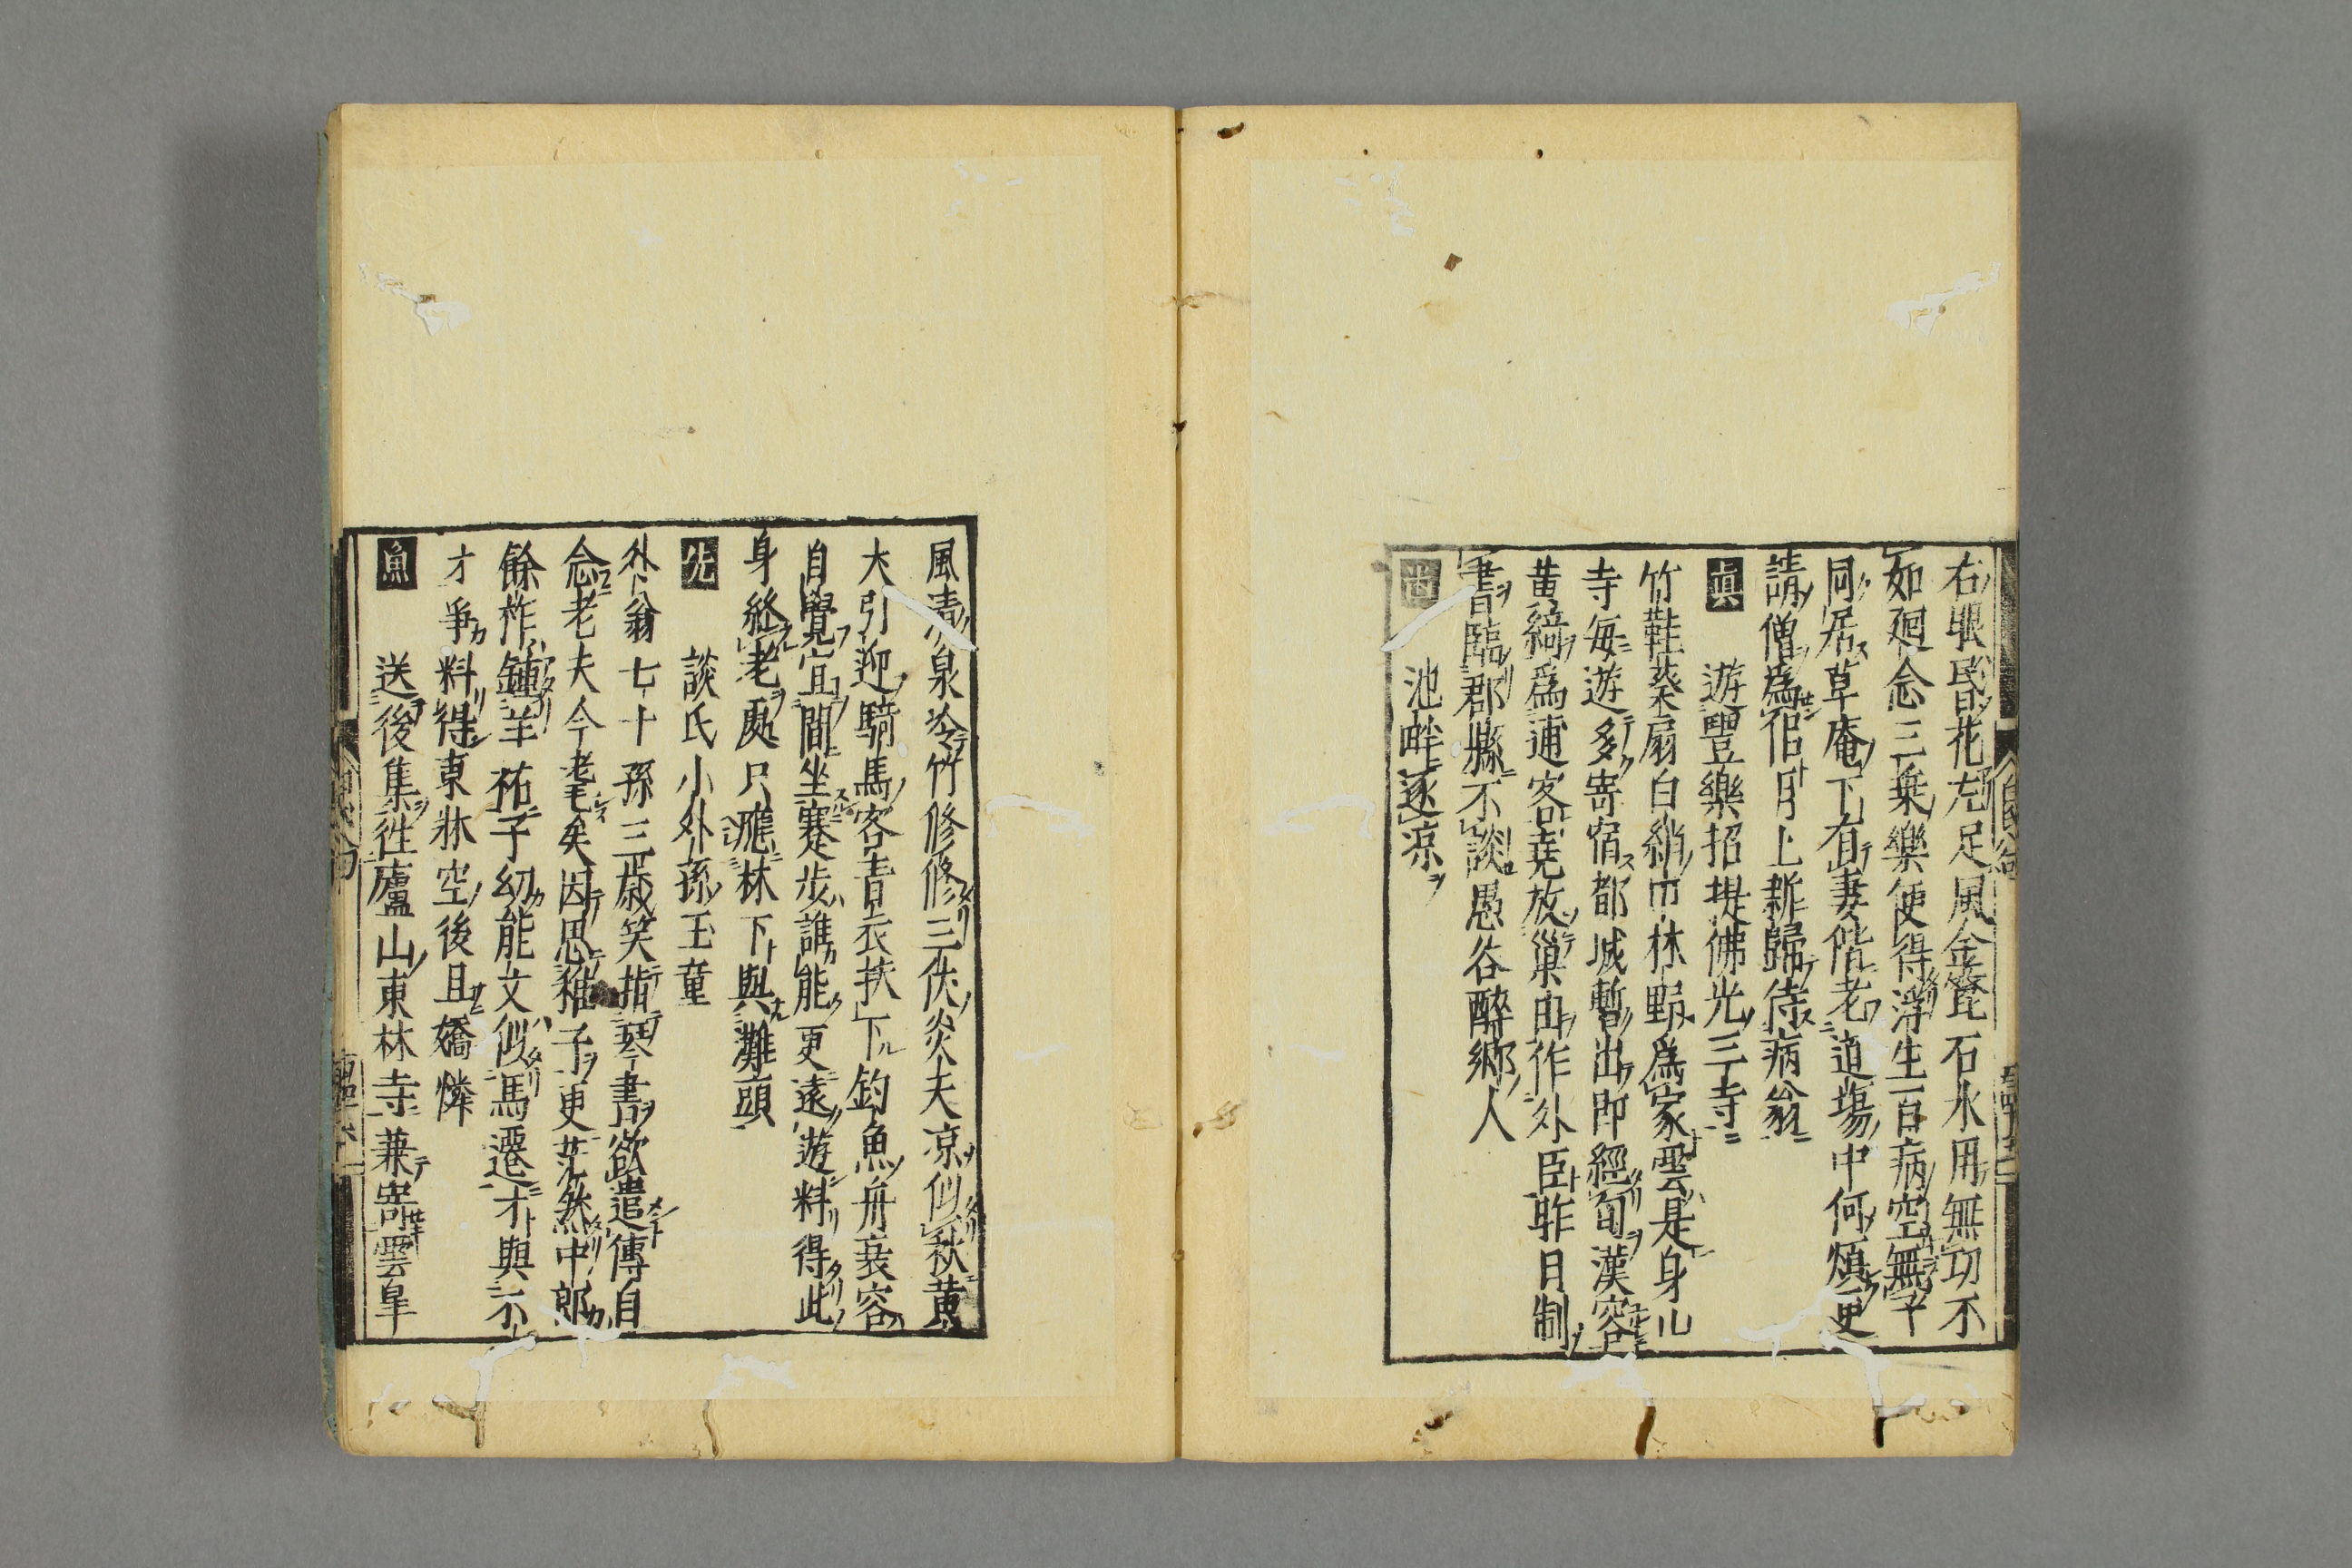 右眼昏花左足風金箆石水用無功不
如廻念三乗樂便得浮生百病空無子
同居草庵下有妻偕老道場中何煩更
請僧為侶月上新歸待病翁
真　遊豐樂招提佛光三寺
竹鞋葵扇白綃巾林野為家雲是身山
寺每遊多寄宿都城暫出即經旬漢容
黃綺為逋客堯放巢由作外臣昨日制
書臨郡縣不談愚谷醉郷人
池畔逐涼
風清泉冷竹修修三伏炎天涼似秋黃
犬引迎騎馬客青衣扶下釣魚舟衰容
自覺宜閒坐蹇步誰能更遠遊料得此
身終老處只應林下與灘頭
先　談氏小外孫玉童
外翁七十孫三歲笑指琴書欲遣傳自
念老夫今耄矣因思稚子更茫然中郎
餘祚鍾羊祜子幼能文似馬遷才與不
才爭料得東牀空後且嬌憐
魚　送後集往廬山東林寺兼寄雲皐